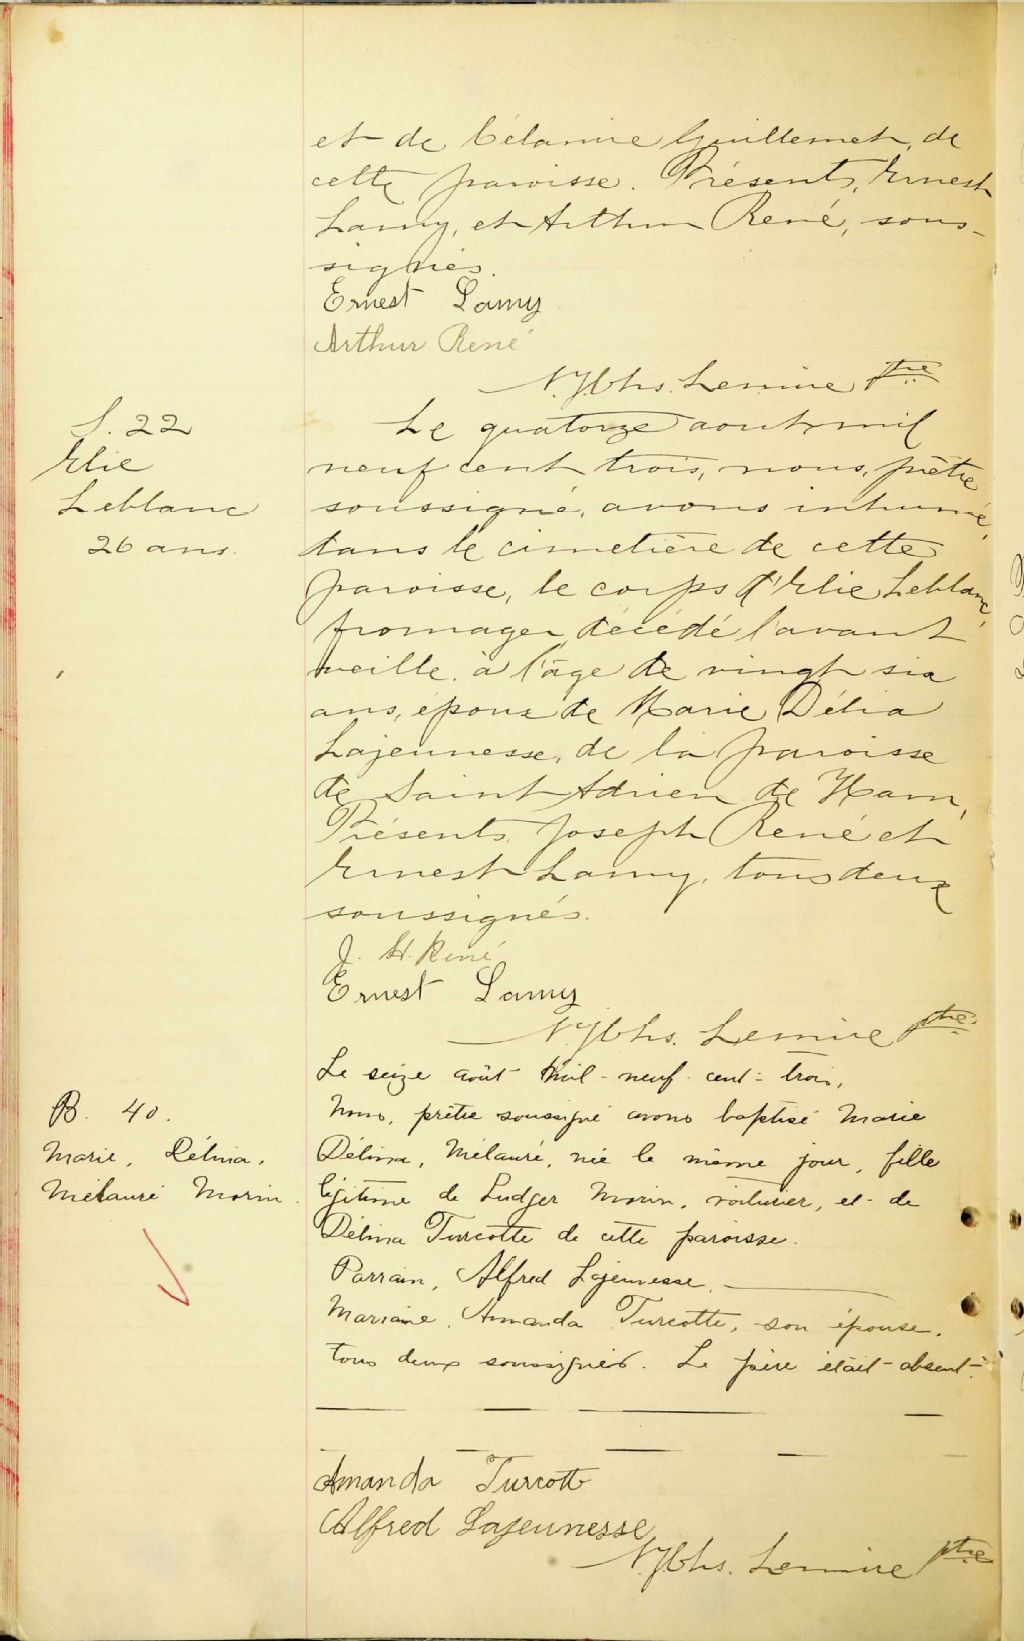 et de Célanire Guillemet, de
cette paroisse. Présents, Ernest
Lamy, et Arthur René, sous-
signés.
Ernest Lamy
Arthur René
Lemire ptre
S. 22
Elie
Leblanc
26 ans.
Le quatorze aout mil
neuf cent trois, nous, prêtre
soussigné, avons inhumé,
dans le cimetière de cette
paroisse, le corps d'Elie Leblanc,
fromager, décédé l'avant
veille, à l'âge de vingt six
ans, époux de Marie Délia
Lajeunesse, de la paroisse
de Saint Adrien de Ham,
Présents Joseph René et
Ernest Lamy, tous deux
soussignés.
J. H. René
Ernest Lamy
Lemire ptre
B. 40.
Marie, Délina,
Mélauré Morin.
Le seize août mil-neuf-cent-trois,
Nous, prêtre soussigné avons baptisé Marie
Délina, Mélauré, née le même jour, fille
légitime de Ludger Morin, voiturier, et de
Délina Turcotte de cette paroisse.
Parrain, Alfred Lajeunesse,
Marraine, Amanda Turcotte, son épouse,
tous deux soussignés. Le père était absent.
Amanda Turcotte
Alfred Lajeunesse
Lemire ptre